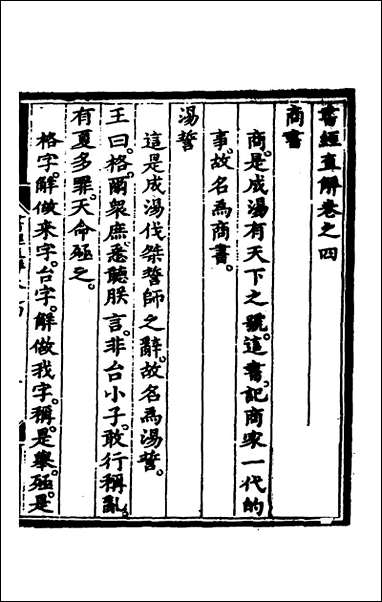 書經直解卷之四
商書
商是成湯有天下之號。這書記商家一代的
事。故名為商書。
湯誓
這是成湯伐桀誓師之辭。故名為湯誓。
王曰。格。爾眾庶。悉聽朕言。非台小子。敢行稱亂。
有夏多罪。天命殛之。
格字。解做來字。台字。解做我字。稱。是舉。殛。是